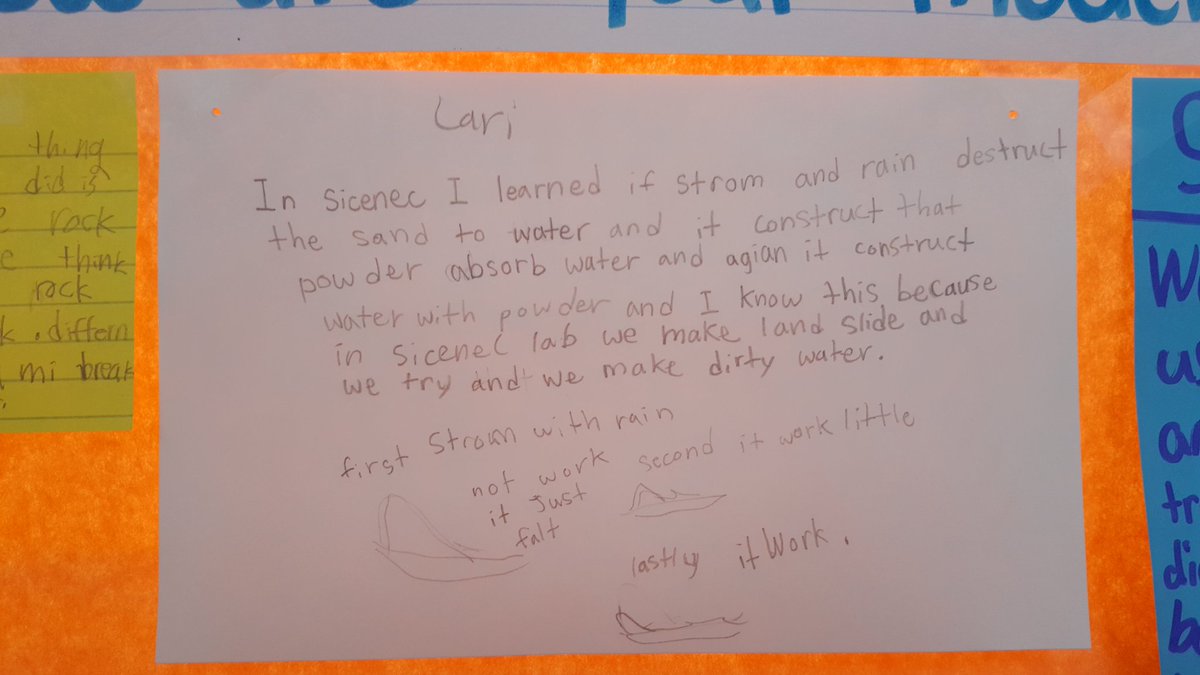 Lari
In Sicenec I learned if Strom and rain destruct
the sand to water and it construct that
powder absorb water and agian it construct
water with powder and I know this because
in Sicenec lab we make land slide and
we try and we make dirty water.
first Strom with rain
not work
it just
falt
second it work little
lastly it Work.
thing
did is
rock
think
rock
differn
mi break